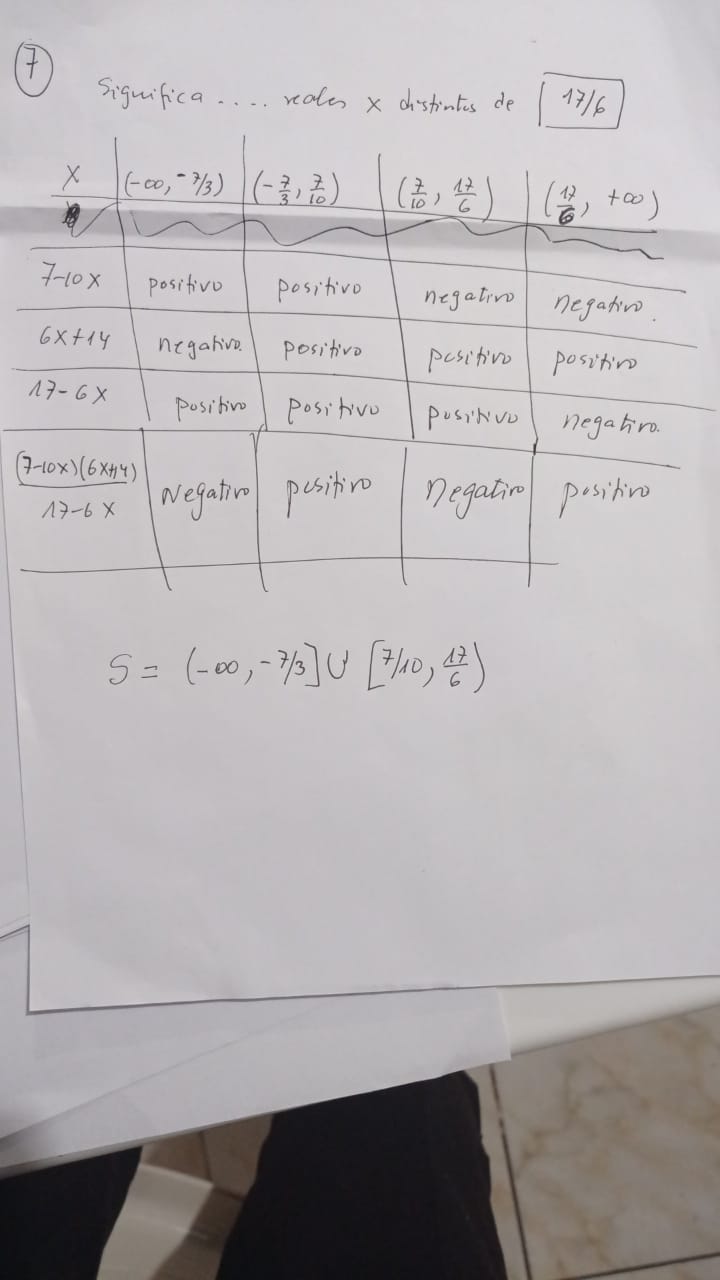 7
Significa .... reales x distintos de 17/6
x (-∞, -7/3) (-7/3, 7/10) (7/10, 17/6) (17/6, +∞)
7-10x positivo positivo negativo negativo.
6x+14 negativo. positivo positivo positivo
17-6x positivo positivo positivo negativo.
(7-10x)(6x+14)
17-6x Negativo positivo negativo positivo
S = (-∞, -7/3] ∪ [7/10, 17/6)